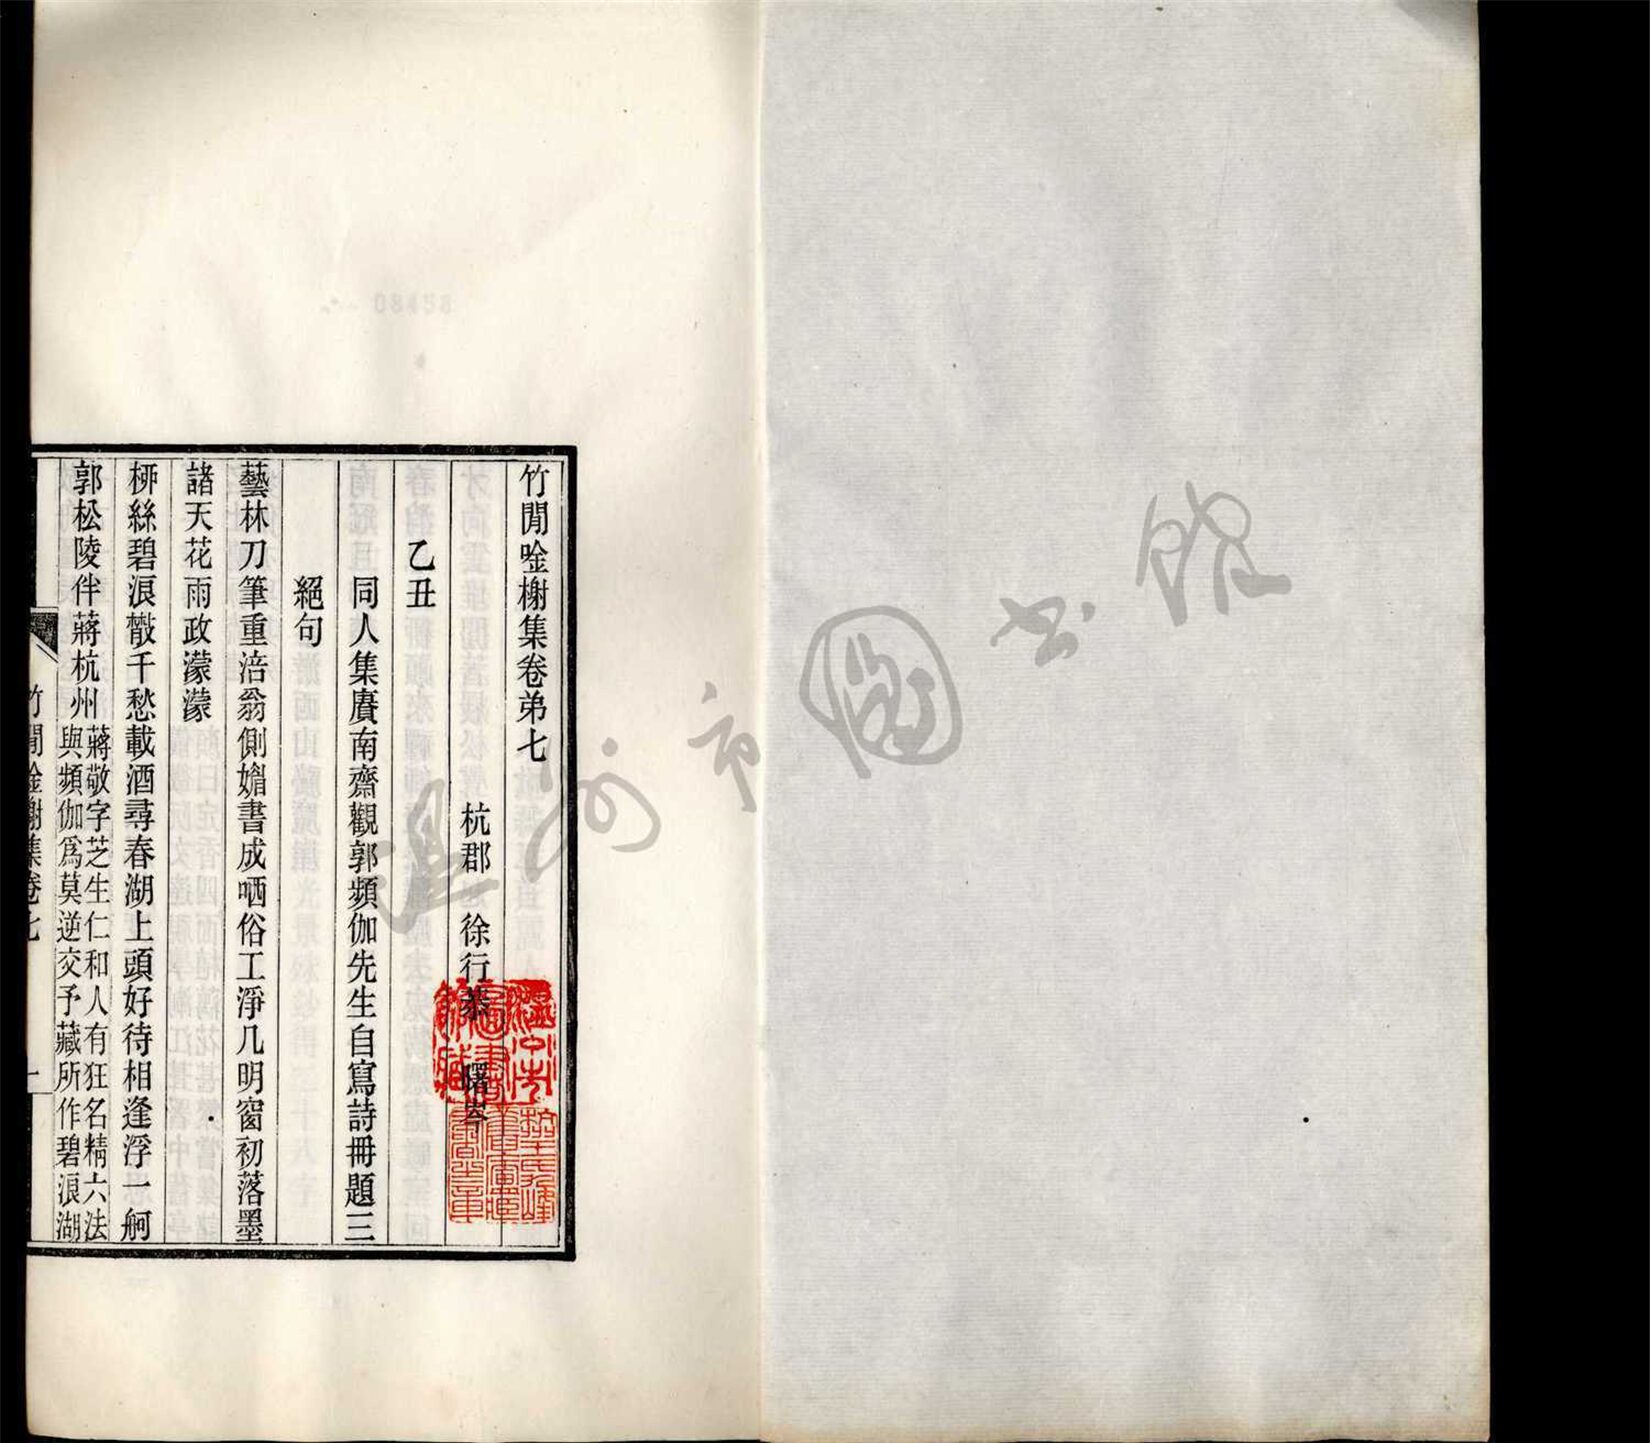 竹閒唫榭集卷弟七
杭郡　徐行恭　曙岑
乙丑
同人集賡南齋觀郭頻伽先生自寫詩冊題三
絕句
藝林刀筆重涪翁側媚書成哂俗工淨几明窗初落墨
諸天花雨政濛濛
桺絲碧浪㪚千愁載酒尋春湖上頭好待相逢浮一舸
郭松陵伴蔣杭州蔣敬字芝生仁和人有狂名精六法
與頻伽爲莫逆交予藏所作碧浪湖
竹閒唫榭集卷七
一
溫州市圖書館
溫州市圖書館藏